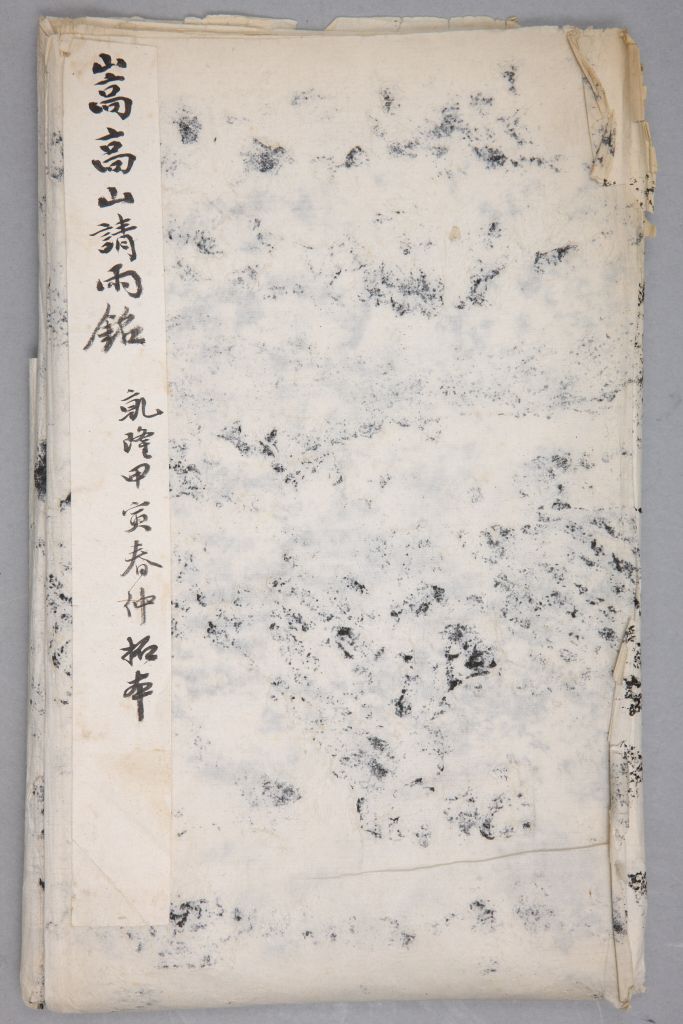 嵩高山請雨銘
乹隆甲寅春仲拓本